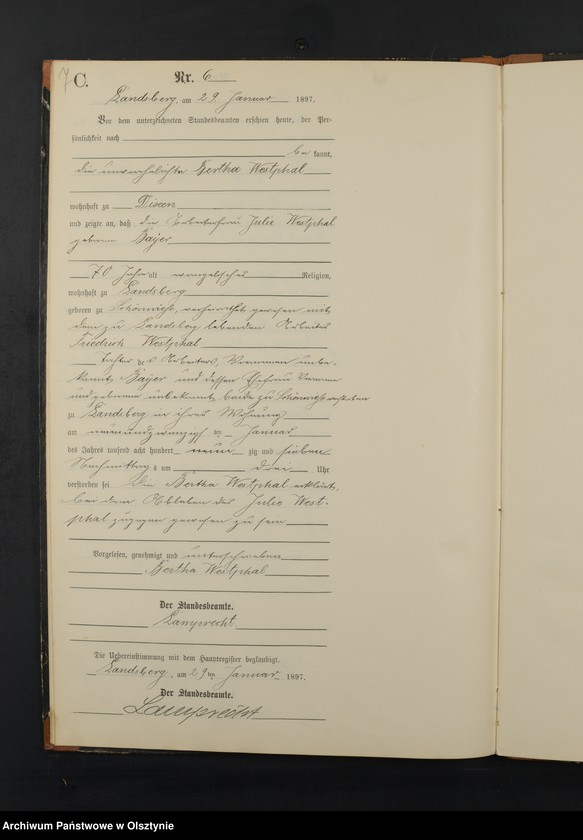 7 C. Nr. 6
Landsberg, am 29. Januar 1897.
Vor dem unterzeichneten Standesbeamten erschien heute, der Per-
sönlichkeit nach
be kannt,
die unverehelichte Bertha Westphal
wohnhaft zu
und zeigte an, daß die Arbeiterfrau Julie Westphal
geborene Bayer
70 Jahre alt evangelischer Religion,
wohnhaft zu Landsberg
geboren zu Schönwiese, verheirathet gewesen mit
dem zu Landsberg lebenden Arbeiter
Friedrich Westphal
Tochter des Arbeiters, Vornamen unbe-
kannt, Bayer und dessen Ehefrau Vorname
und geborene unbekannt, beide zu Schönwiese verstorben
zu Landsberg in ihrer Wohnung
am neunundzwanzigsten Januar
des Jahres tausend acht hundert neun zig und sieben
Nachmittags um drei Uhr
verstorben sei. Die Bertha Westphal erklärte,
bei dem Ableben der Julie West-
phal zugegen gewesen zu sein
Vorgelesen, genehmigt und unterschrieben
Bertha Westphal
Der Standesbeamte.
Lamprecht
Die Uebereinstimmung mit dem Hauptregister beglaubigt.
Landsberg, am 29ten Januar 1897.
Der Standesbeamte.
Lamprecht
Archiwum Państwowe w Olsztynie